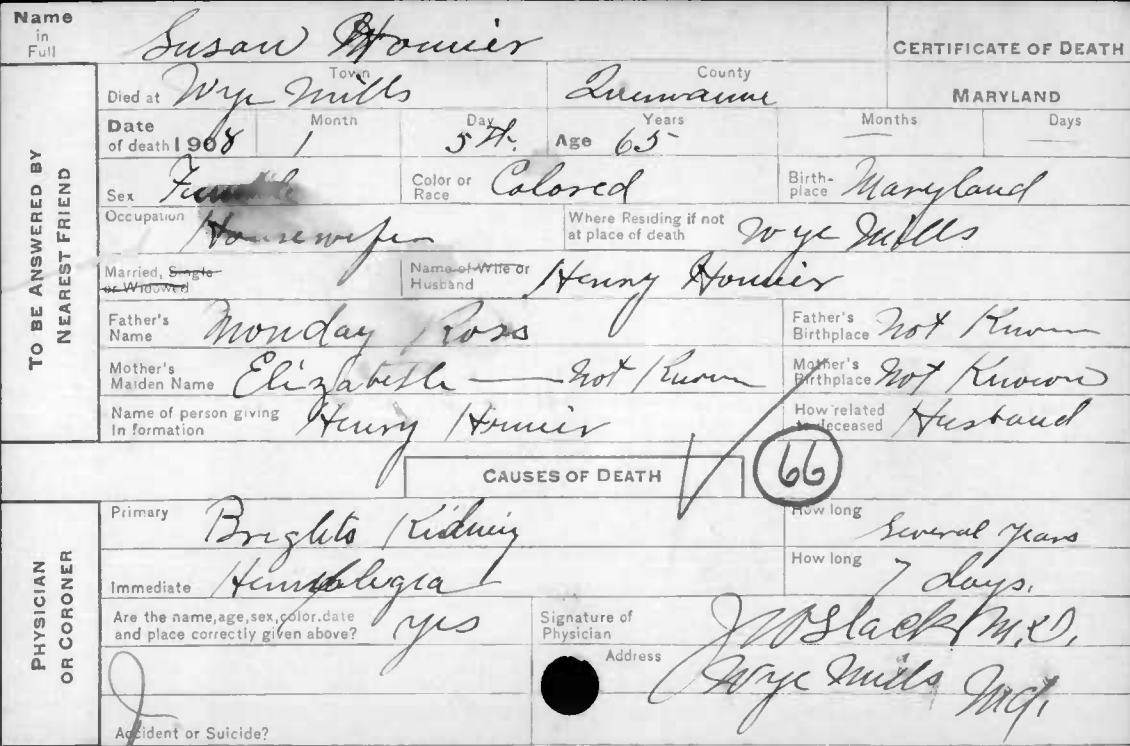 Name in Full Susan Homier CERTIFICATE OF DEATH
Died at Town Wye Mills County Queenanne MARYLAND
Date of death 1908 Month 1 Day 5th. Age Years 65 Months — Days —
Sex Female Color or Race Colored Birth-place Maryland
Occupation Housewife Where Residing if not at place of death Wye Mills
Married, Single or Widowed Name of Wife or Husband Henry Homier
Father's Name Monday Ross Father's Birthplace Not Known
Mother's Maiden Name Elizabeth — Not Known Mother's Birthplace Not Known
Name of person giving In formation Henry Homier How related to deceased Husband
TO BE ANSWERED BY NEAREST FRIEND
CAUSES OF DEATH 66
Primary Brights Kidney How long Several years
Immediate How long 7 days.
Are the name,age,sex,color.date and place correctly given above? yes Signature of Physician Slack M.D.
Address Wye Mills Md.
Accident or Suicide?
PHYSICIAN OR CORONER